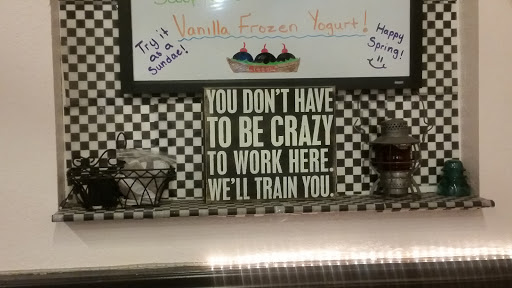 Vanilla Frozen Yogurt!
Try it
as a
Sundae!
Happy
Spring!
YOU DON'T HAVE
TO BE CRAZY
TO WORK HERE.
WE'LL TRAIN YOU.